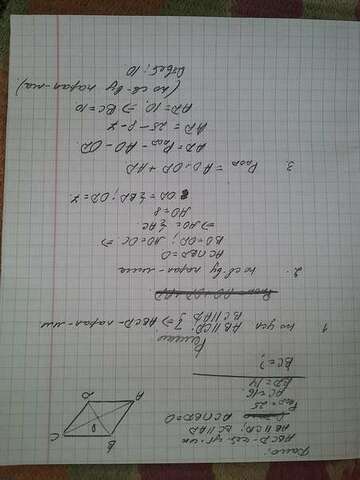 Дано:
ABCD-чет-уг-ик
AB||CD; BC||AD
AC∩BD=O
P_AOD = 25
AC=16
BD=14
BC=?
B
C
O
A
D
Решение
1 по усл AB||CD; BC||AD } => ABCD-парал-мм
2. по св-ву парал-мма
AC∩BD=O
BO=OD; AO=OC =>
=> AO=½AC
AO=8
OD=½BD; OD=7
3. P_AOD = AO+OD+AD
AD=P_AOD-AO-OD
AD=25-8-7
AD=10; => BC=10
(по св-ву парал-ма)
Ответ: 10